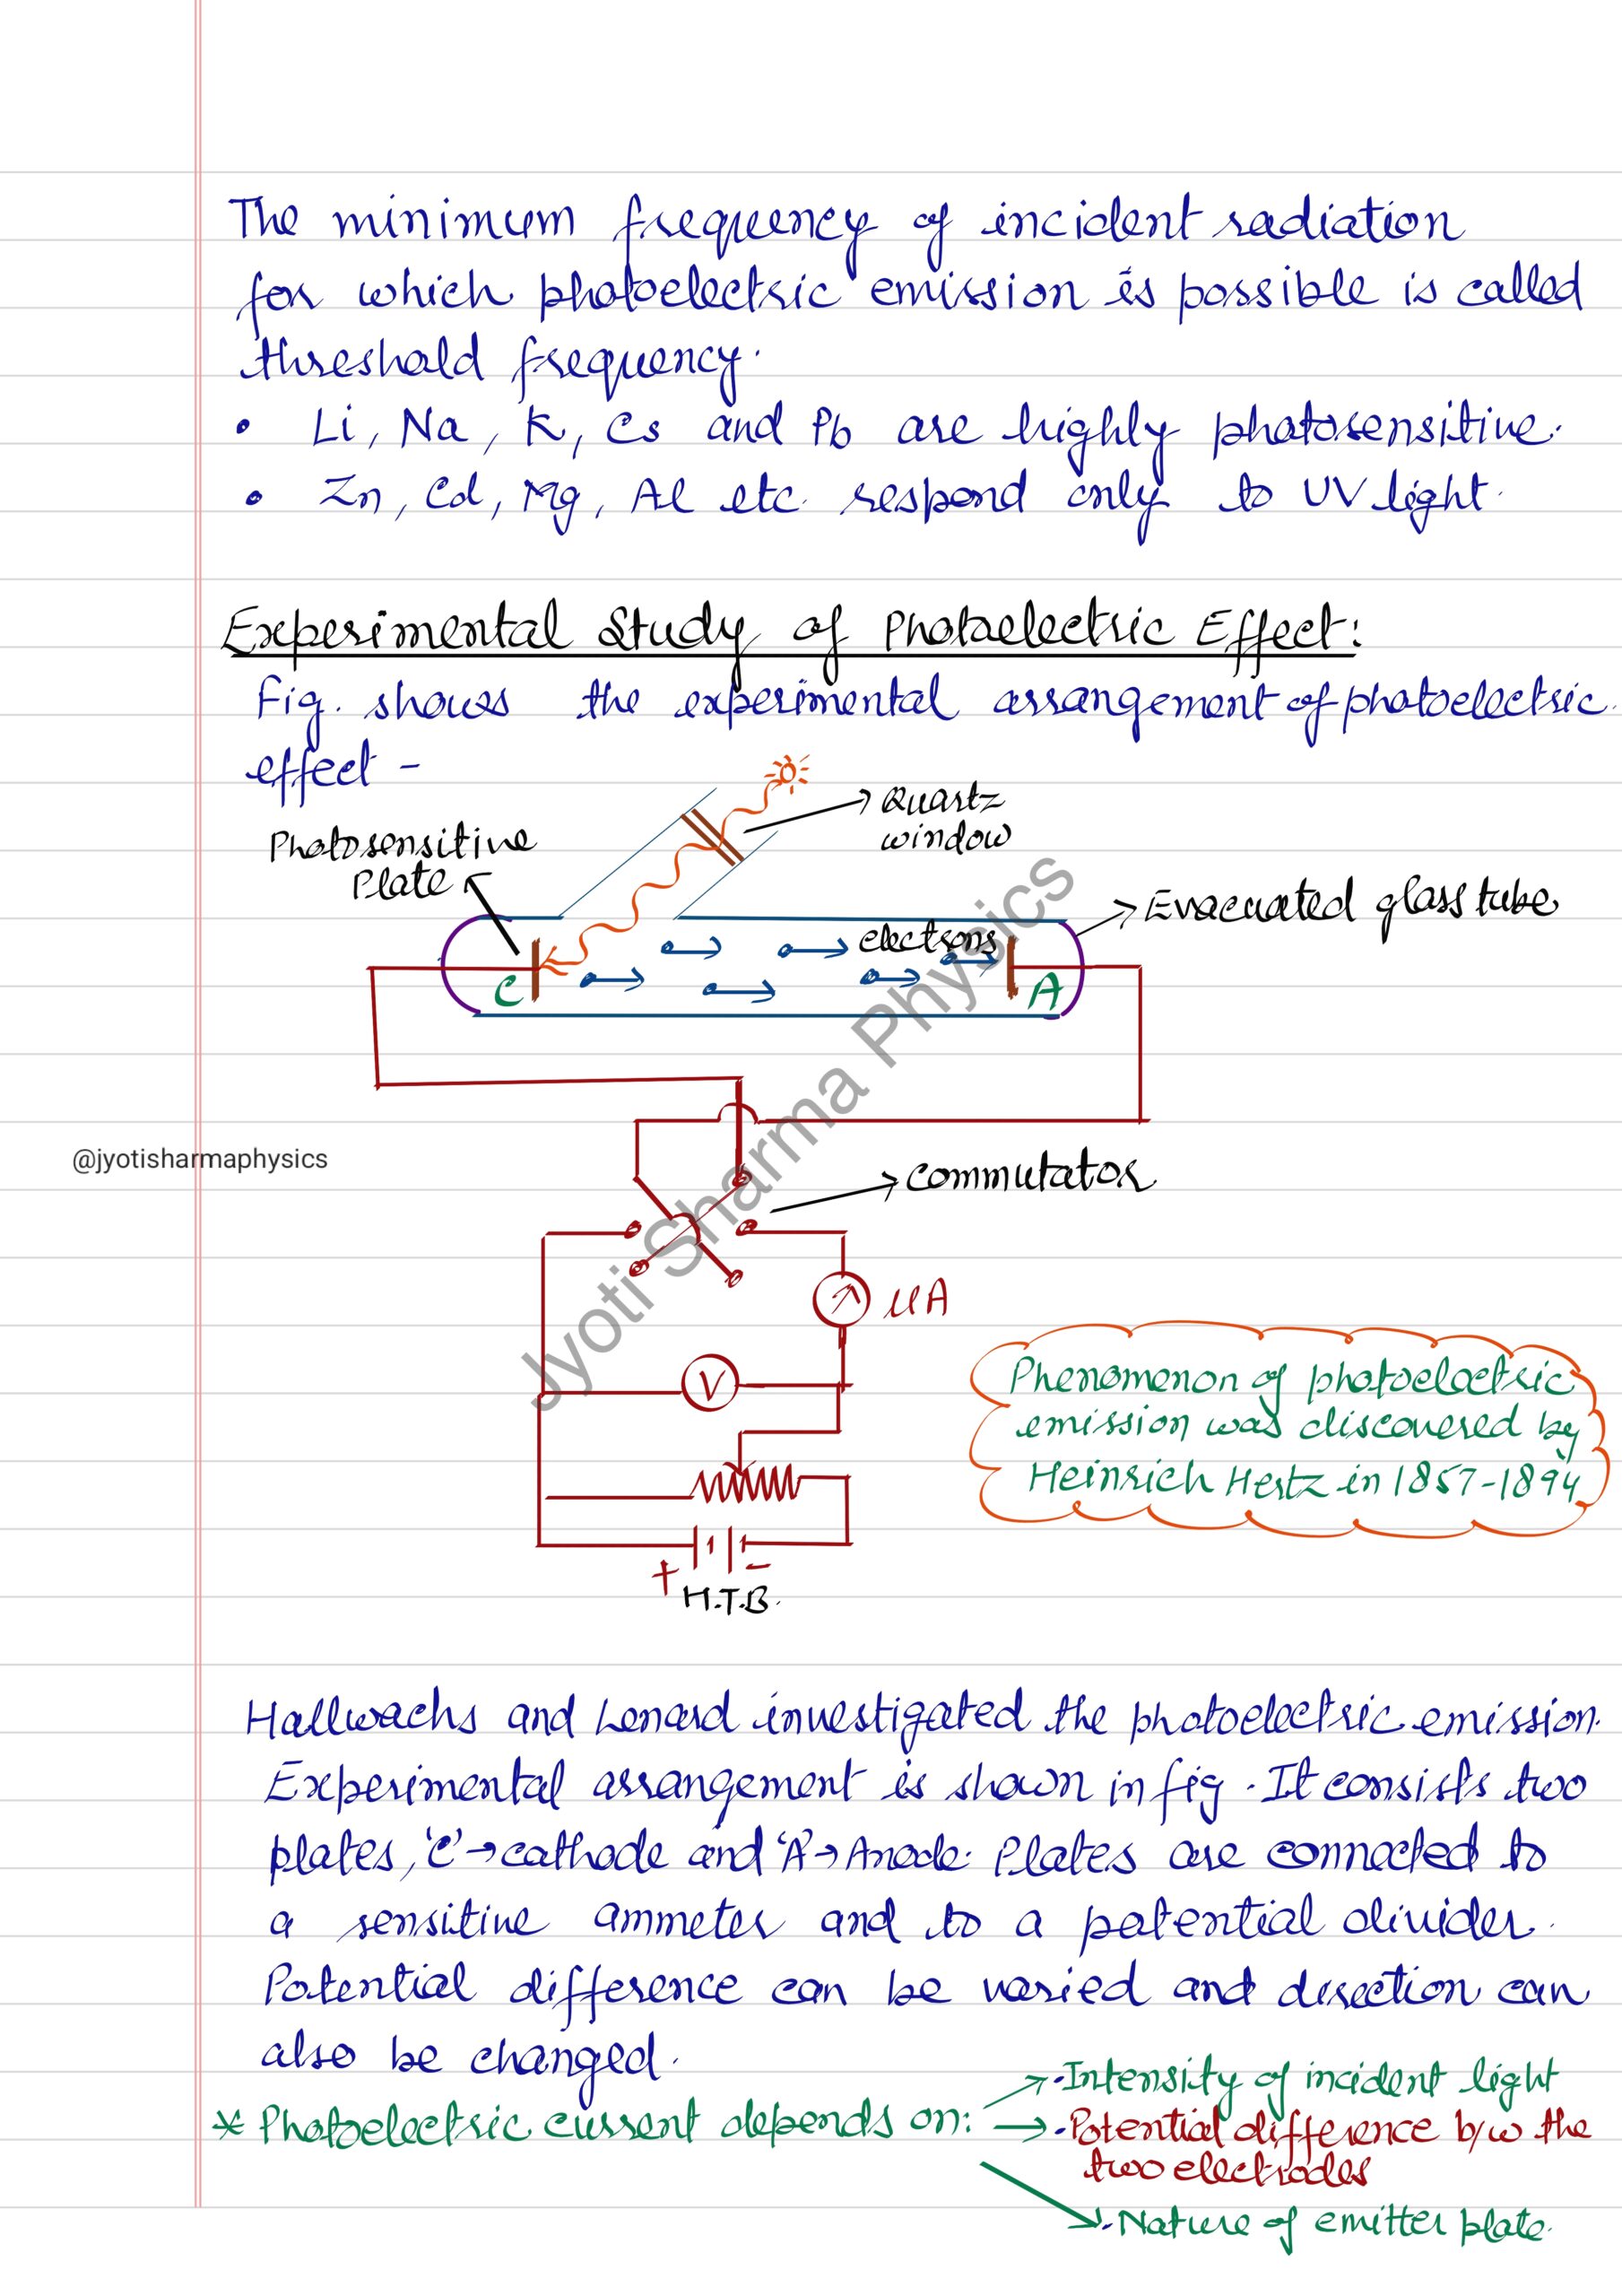 The minimum frequency of incident radiation
for which photoelectric emission is possible is called
threshold frequency.
• Li, Na, K, Cs and Pb are highly photosensitive.
• Zn, Cd, Mg, Al etc. respond only to UV light.
Experimental Study of Photoelectric Effect:
Fig. shows the experimental arrangement of photoelectric
effect -
Quartz
window
Photosensitive
Plate
Evacuated glass tube
electrons
C
A
@jyotisharmaphysics
Commutator
μA
V
Phenomenon of photoelectric
emission was discovered by
Heinrich Hertz in 1857-1894
+
-
H.T.B.
Jyoti Sharma Physics
Hallwachs and Lenard investigated the photoelectric emission.
Experimental arrangement is shown in fig. It consists two
plates, 'C' → cathode and 'A' → Anode. Plates are connected to
a sensitive ammeter and to a potential divider.
Potential difference can be varied and direction can
also be changed.
* Photoelectric current depends on: → • Intensity of incident light
→ • Potential difference b/w the
two electrodes
→ • Nature of emitter plate.